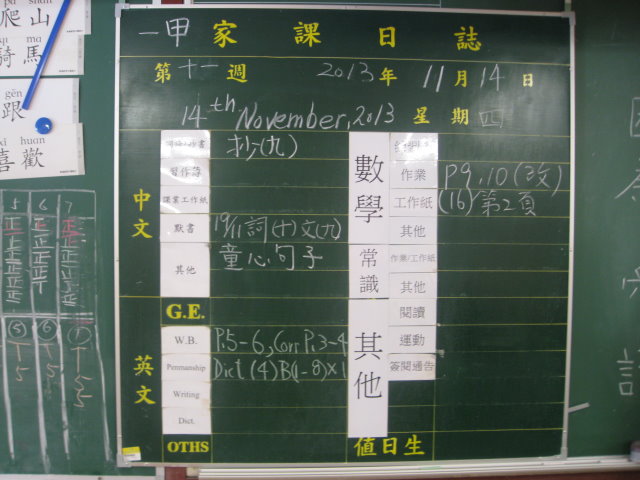 爬山
騎馬
gēn
跟
huan
喜歡
5 6 7
一甲家課日誌
第十一週 2013年 11月14日
14th November, 2013 星期四
中文
抄(九)
習作簿
課業工作紙
默書 19/11詞(十)文(九)
其他 童心句子
英文
G.E.
W.B. P.5-6, Corr P.3-4
Penmanship Dict (4) B(1-8)×1
Writing
Dict.
OTHS
數學
作業 P9,10(改)
工作紙 (16)第2頁
其他
常識
作業/工作紙
其他
其他
閱讀
運動
簽閱通告
值日生